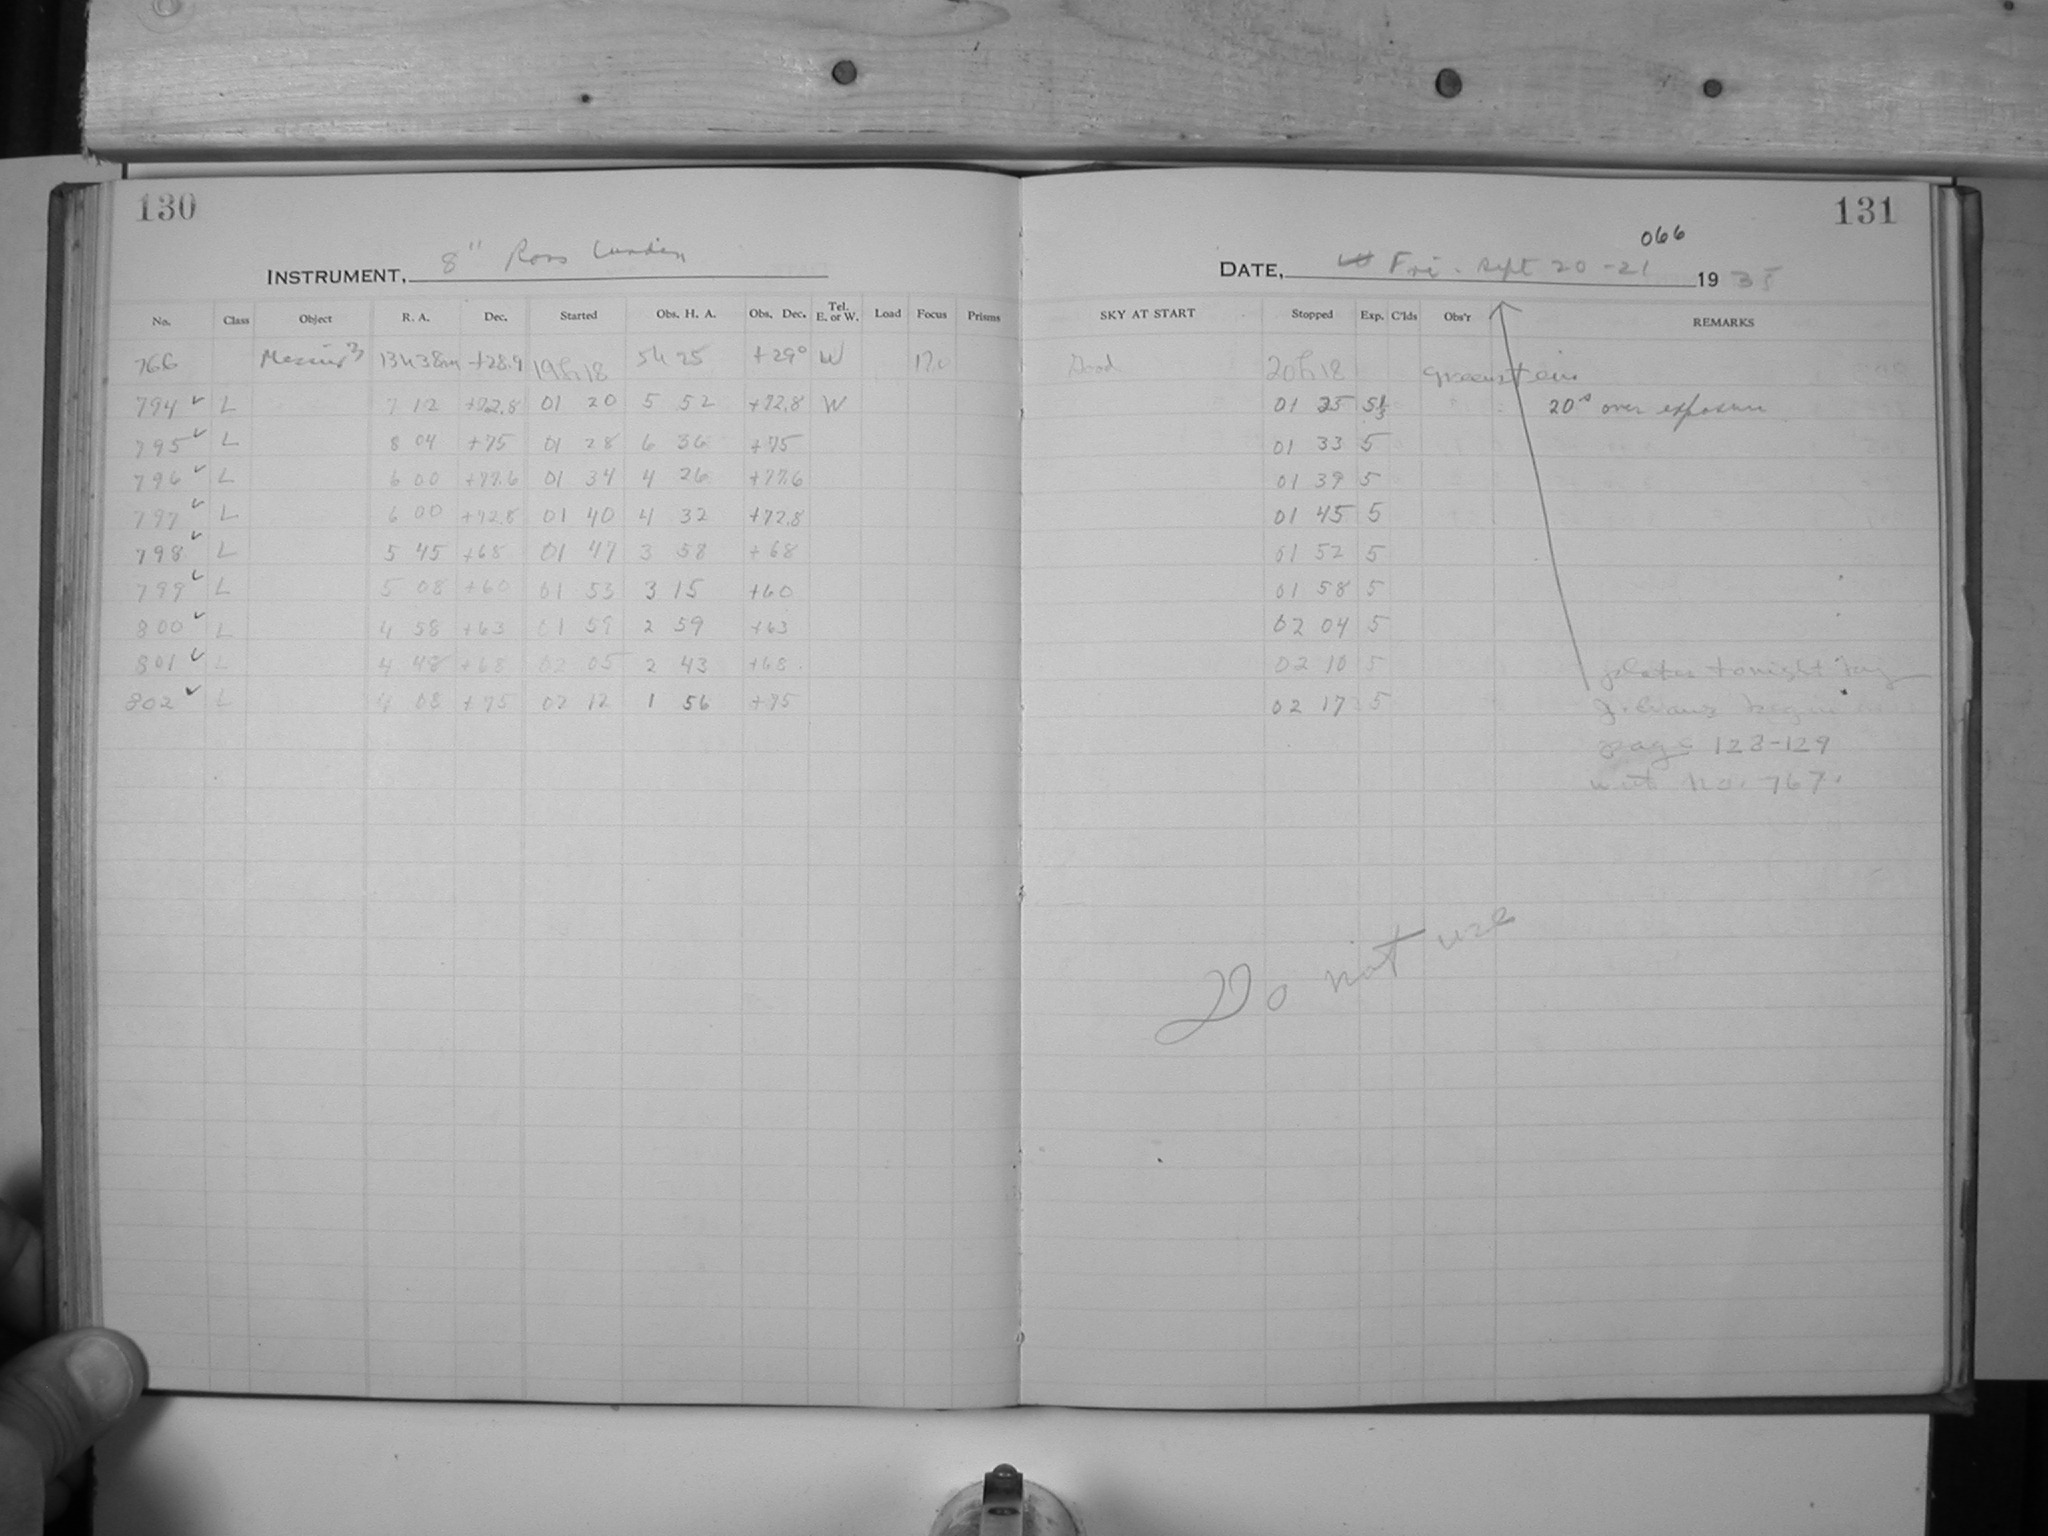 130
131
066
INSTRUMENT, 8" Ross Lundin
DATE, Fri. Sept 20-21 1935
No. Class Object R. A. Dec. Started Obs. H. A. Obs. Dec. Tel. E. or W. Load Focus Prisms SKY AT START Stopped Exp. C'lds Obs'r REMARKS
766 Messier 3 13h38m +28.9 19h18 5h 25 +29° W 17.0 Good 20h18 Greenstein
794 ✓ L 7 12 +72.8 01 20 5 52 +72.8 W 01 25 5 1/3 20s over exposure
795 ✓ L 8 04 +75 01 28 6 36 +75 01 33 5
796 ✓ L 6 00 +77.6 01 34 4 26 +77.6 01 39 5
797 ✓ L 6 00 +72.8 01 40 4 32 +72.8 01 45 5
798 ✓ L 5 45 +68 01 47 3 58 +68 01 52 5
799 ✓ L 5 08 +60 01 53 3 15 +60 01 58 5
800 ✓ L 4 58 +63 01 59 2 59 +63 02 04 5
801 ✓ L 4 48 +68 02 05 2 43 +68 02 10 5
802 ✓ L 4 08 +75 02 12 1 56 +75 02 17 5
plates tonight
page 128-129
no. 767.
Do not use